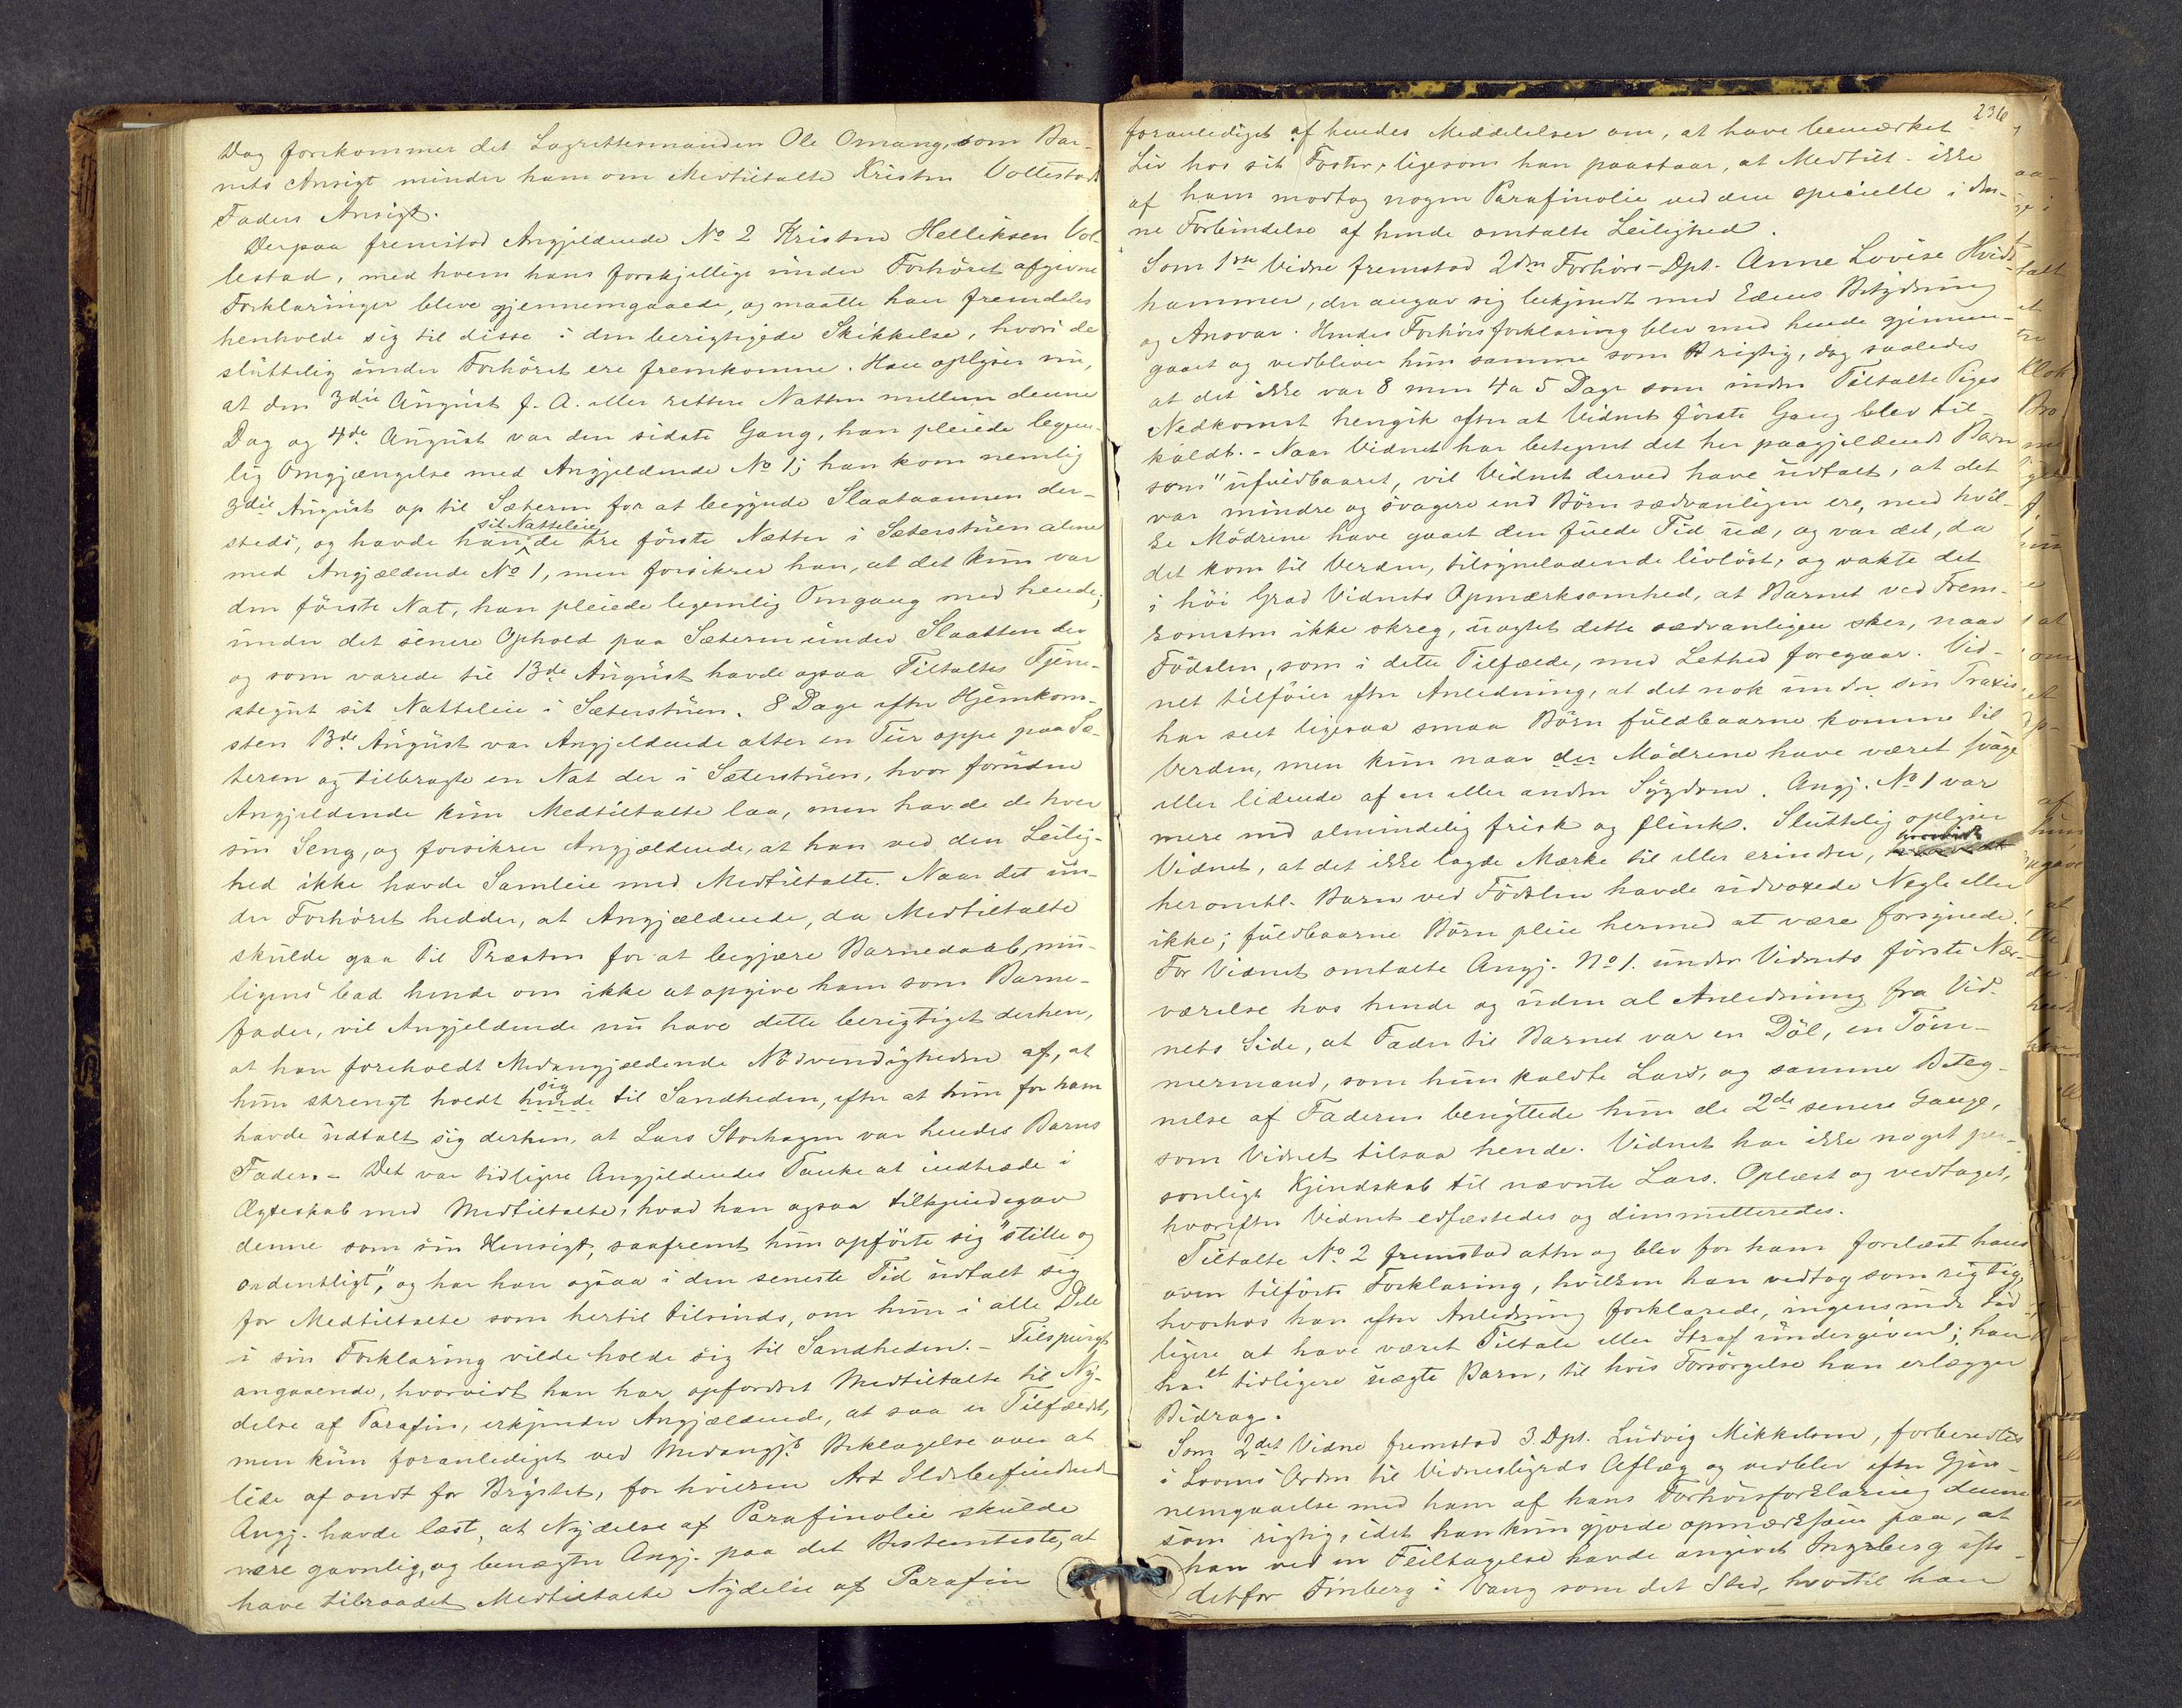 Dog forekommer det Lagrettesmanden Ole Omang, som Bar-
nets Ansigt minder ham om Medtiltalte Kristen Vollestads
Faders Ansigt.
Derpaa fremstod Angjeldende No 2 Kristen Helliksen Vol-
lestad, med hvem hans forskjellige under Forhöret afgivne
Forklaringer bleve gjennemgaaede, og maatte han fremdeles
henholde sig til disse i den berigtigede Skikkelse, hvori de
sluttelig under Forhöret ere fremkomne. Han oplyser nu,
at den 3die August f. A. eller rettere Natten mellem denne
Dag og 4de August var den sidste Gang, han pleiede legem-
lig Omgjængelse med Angjeldende No 1; han kom nemlig
3die August op til Sæteren for at begynde Slaataannen der-
steds, og havde han sit Natteleie de tre förste Nætter i Sæterstuen alene
med Angjældende No 1, men forsikrer han, at det kun var
den förste Nat, han pleiede legemlig Omgang med hende;
under det senere Ophold paa Sæteren under Slaatten der
og som varede til 13de August havde ogsaa Tiltaltes Tjene-
stegut sit Natteleie i Sæterstuen. 8 Dage efter Hjemkom-
sten 13de August var Angjeldende atter en Tur oppe paa Sæ-
teren og tilbragte en Nat der i Sæterstuen, hvor foruden
Angjeldende kun Medtiltalte laa, men havde de hver
sin Seng, og forsikrer Angjældende, at han ved den Leilig-
hed ikke havde Samleie med Medtiltalte. Naar det un-
der Forhöret hedder, at Angjældende, da Medtiltalte
skulde gaa til Præsten for at begjære Barnedaab,
bad hende om ikke at opgive ham som Barne-
fader, vil Angjeldende nu have dette berigtiget derhen,
at han foreholdt Medangjældende Nödvendigheden af, at
hun strengt holdt hende sig til Sandheden, efter at hun for ham
havde udtalt sig derhen, at Lars Storhagen var hendes Barns
Fader. - Det var tidligere Angjeldendes Tanke at indtræde i
Ægteskab med Medtiltalte, hvad han ogsaa tilkjendegav
denne som sin Hensigt, saafremt hun opförte sig "stille og
ordentligt", og har han ogsaa i den seneste Tid udtalt sig
for Medtiltalte som hertil tilsinds, om hun i alle Dele
i sin Forklaring vilde holde sig til Sandheden. - Tilspurgt
angaaende, hvorvidt han har opfordret Medtiltalte til Ny-
delse af Parafin, erkjender Angjældende, at saa er Tilfældet,
men kun foranlediget ved Medangjs Beklagelse over at
lide af ondt for Brystet, for hvilken Art Ildebefindende
Angj. havde læst, at Nydelse af Parafinolie skulde
være gavnlig, og benægter Angj. paa det Bestemteste, at
have tilraadet Medtiltalte Nydelse af Parafin
236
foranlediget af hendes Meddelelser om, at have bemærket
Liv hos sit Foster, ligesom han paastaar, at Medtilt. ikke
af ham modtog nogen Parafinolie ved den specielle i den-
ne Forbindelse af hende omtalte Leilighed.
Som 1ste Vidne fremstod 2den Forhörs-Dpt. Anne Lovise Hvids-
hammer, der angav sig bekjendt med Edens Betydning
og Ansvar. Hendes Forhörsforklaring blev med hende gjennem-
gaaet og vedbliver hun samme som rigtig, dog saaledes
at det ikke var 8 men 4 a 5 Dage som inden Tiltalte Piges
Nedkomst hengik efter at Vidnet förste Gang blev til-
kaldt. - Naar Vidnet har betegnet det her paagjeldende Barn
som "ufuldbaaret, vil Vidnet derved have udtalt, at det
var mindre og svagere end Börn sædvanligen ere, med hvil-
ke Mödrene have gaaet den fulde Tid ud, og var det, da
det kom til Verden, tilsyneladende livlöst, og vakte det
i höi Grad Vidnets Opmærksomhed, at Barnet ved Frem-
komsten ikke skreg, uagtet dette sædvanligen sker, naar
Födslen, som i dette Tilfælde, med Lethed foregaar. Vid-
net tilföier efter Anledning, at det nok under sin Praxis
har seet ligesaa smaa Börn fuldbaarne komme til
Verden, men kun naar der Mödrene have været svage
eller lidende af en eller anden Sygdom. Angj. No 1 var
mere end almindelig frisk og flink. Sluttelig oplyser
Vidnet, at det ikke lagde Mærke til eller erindrer, hvorvidt
heromtl. Barn ved Födslen havde udvoxede Negle eller
ikke; fuldbaarne Börn pleie hermed at være forsynede.
For Vidnet omtalte Angj. No 1. under Vidnets förste Nær-
værelse hos hende og uden al Anledning fra Vid-
nets Side, at Fader til Barnet var en Döl, en Töm-
mermand, som hun kaldte Lars, og samme Beteg-
nelse af Faderen benyttede hun de 2de senere Gange,
som Vidnet tilsaa hende. Vidnet har ikke noget per-
sonligt Kjendskab til nævnte Lars. Oplæst og vedtaget,
hvorefter Vidnet edfæstedes og dimmitteredes.
Tiltalte No 2 fremstod atter og blev for ham forelæst hans
oven tilförte Forklaring, hvilken han vedtog som rigtig,
hvorhos han efter Anledning forklarede, ingensinde tid-
ligere at have været Tiltale eller Straf undergiven; han
har et tidligere uægte Barn, til hvis Forsörgelse han erlægger
Bidrag.
Som 2det Vidne fremstod 3. Dpt. Ludvig Mikkelsen, forberedtes
i Lovens Orden til Vidnesbyrds Aflæg og vedblev efter Gjen-
nemgaaelse med ham af hans Forhörsforklaring denne
som rigtig, idet han kun gjorde opmærksom paa, at
han ved en Feiltagelse havde angivet Ingeberg iste-
detfor Finberg i Vang som det Sted, hvortil han